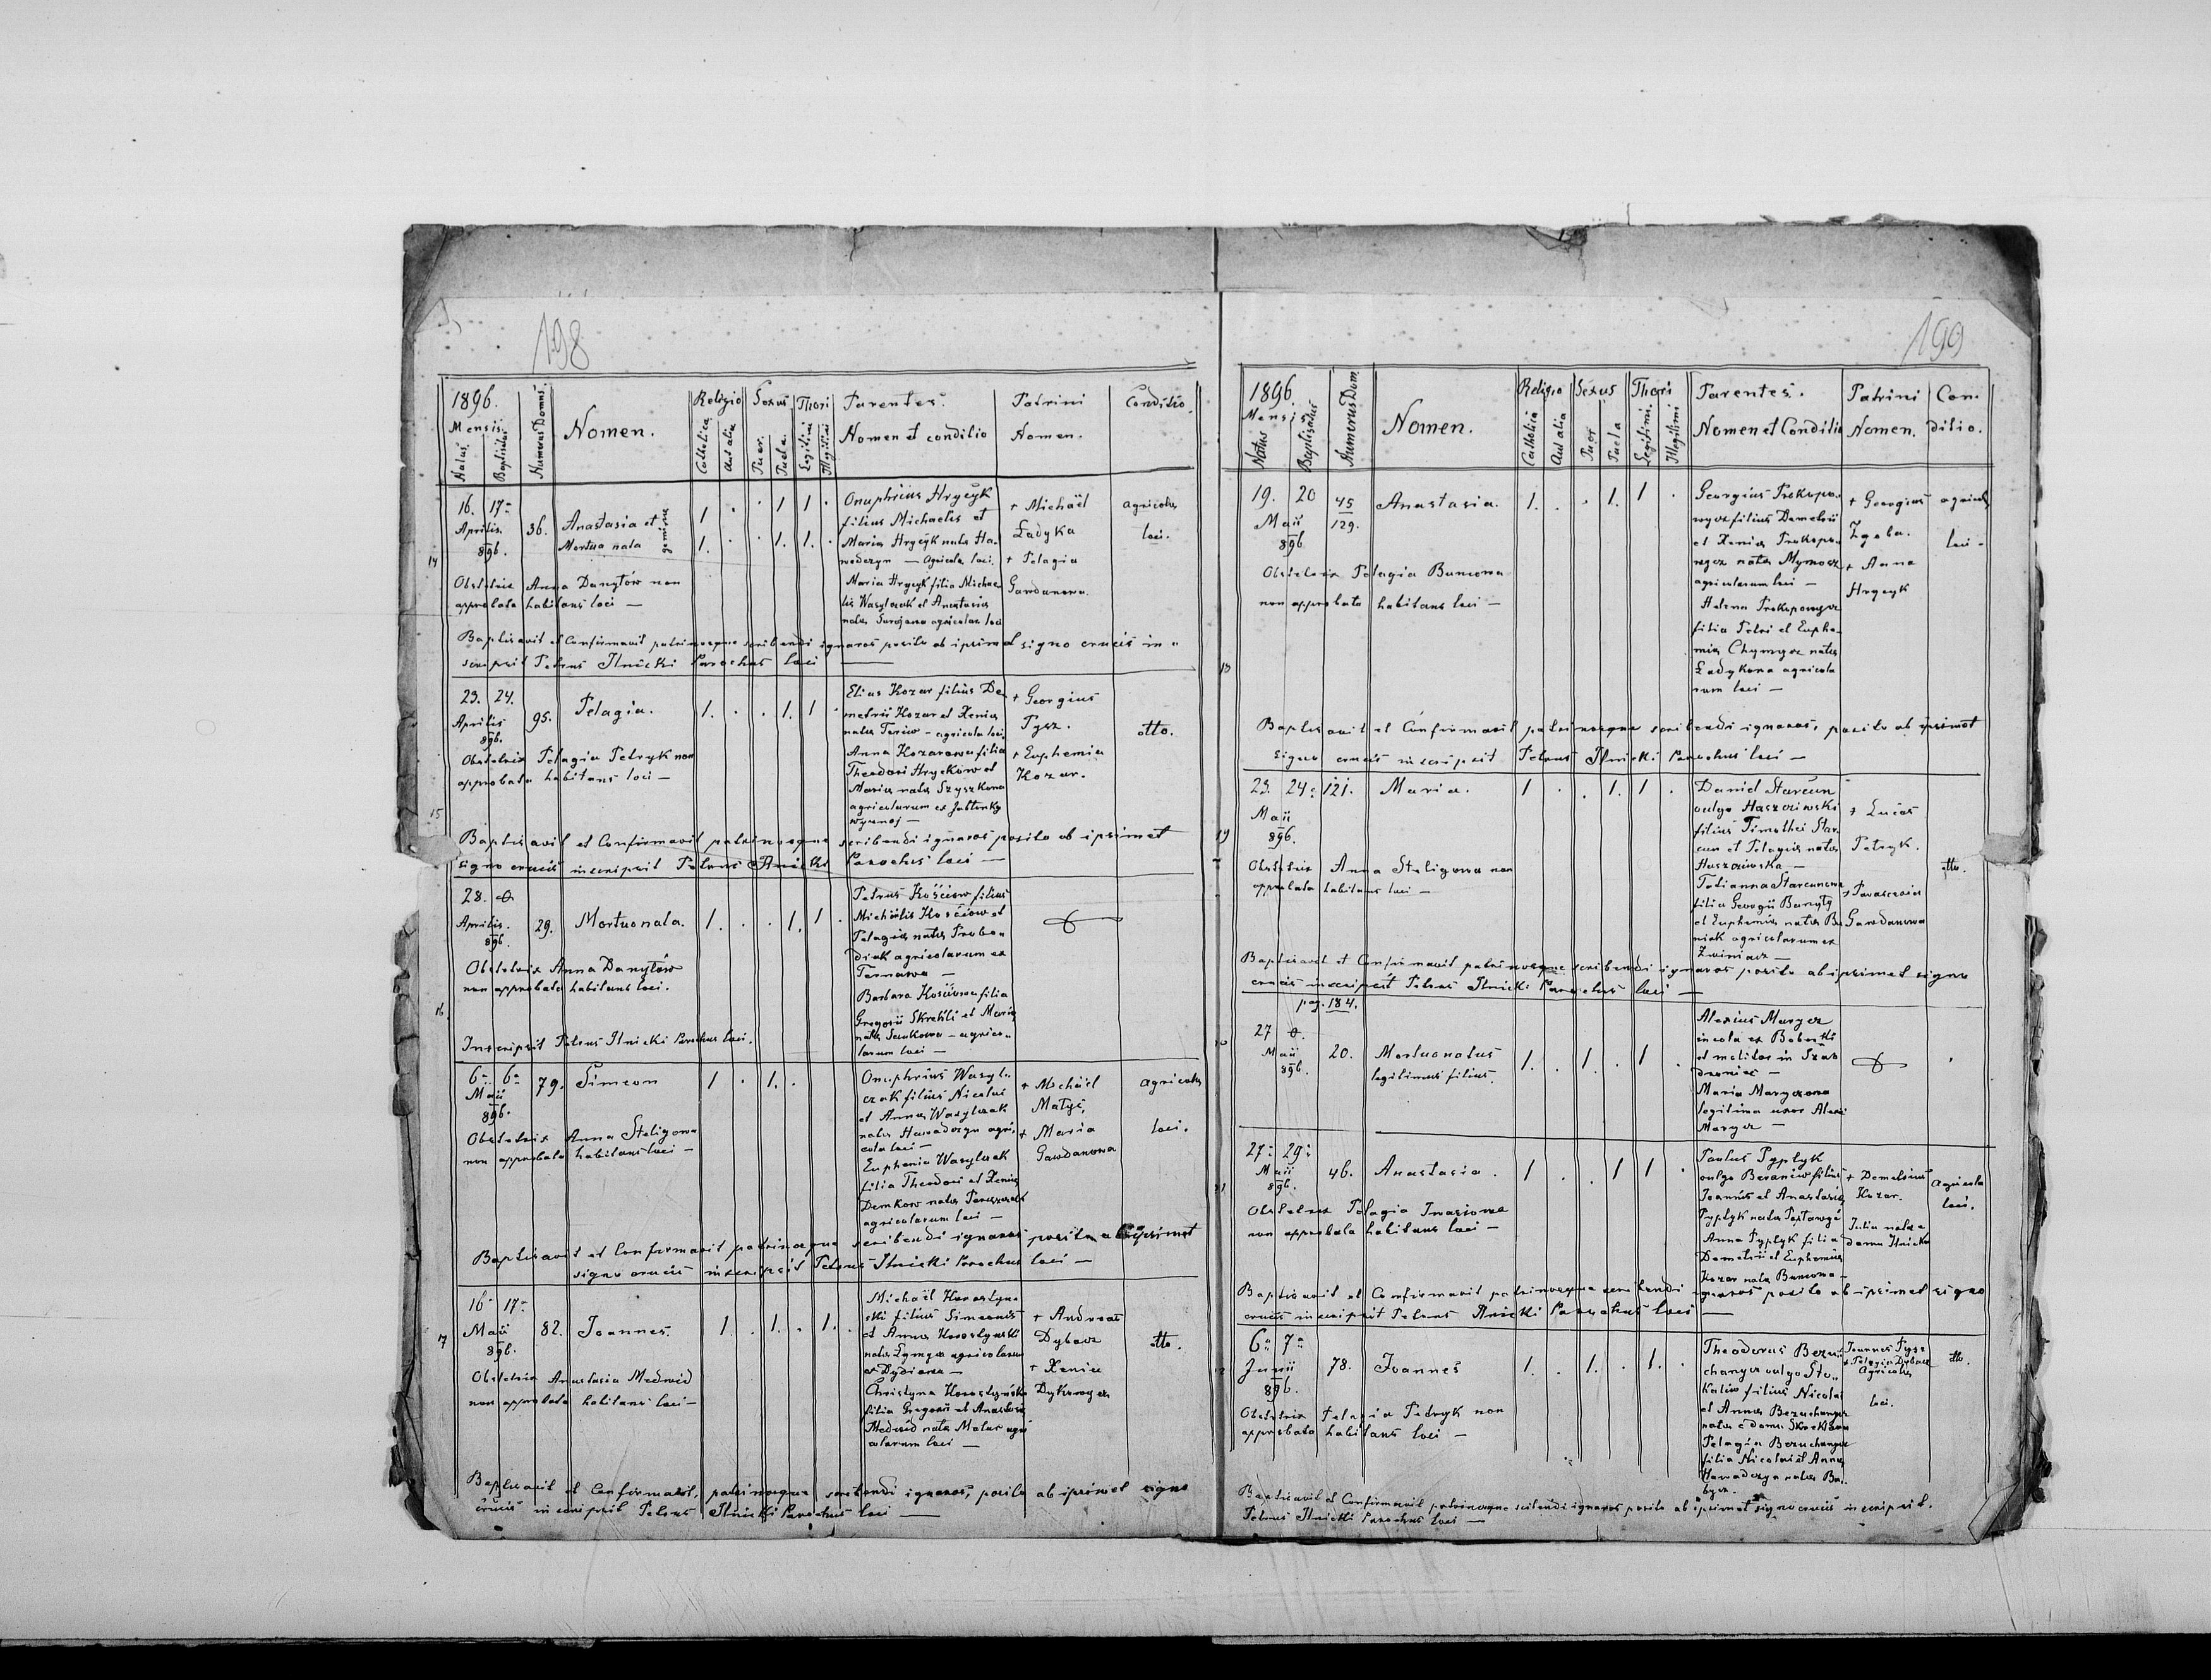 198
1896.
Mensis.
Natus
Baptisatus
Numerus Domus.
Nomen.
Religio
Catholica
Aut alia
Sexus
Puer.
Puela.
Thori
Legitimi
Illegitimi
Parentes.
Nomen et conditio
Patrini
Nomen.
Conditio.
14
16. 17
Aprilis.
896.
36.
Anastasia et
Mortua nata
1 . . 1 1 .
1. . . 1. 1. .
Onuphrius Hrycyk
filius Michaelis et
Maria Hrycyk nata Ha-
wadczyn — Agricola loci.
Maria Hrycyk filia Michae
lis Wasylczak et Anastasia
nata agricolae loci
+ Michaël
Ładyka
+ Pelagia
Gawdanowa.
agricolae
loci.
Obstetrix Anna Danyłów non
approbata habitans loci —
Baptisavit et Confirmavit patrinosque scribendi ignaros posito ab ipsimet signo crucis in-
scripsit Petrus Ilnicki Parochus loci —
15
23. 24.
Aprilis
896.
95.
Pelagia.
1. . . 1. 1 .
Elias Kozar filius De
metrii Kozar et Xenia
nata — agricola loci.
Anna Kozarowa filia
Theodori Hryckow et
Maria nata Szyszkowa
agricolarum ex Jabłonka
wyżnaj —
+ Georgius
Pysz.
+ Euphemia
Kozar.
dtto.
Obstetrix Pelagia Petryk non
approbata habitans loci —
Baptisavit et Confirmavit patrinosque scribendi ignaros posito ab ipsimet
signo crucis inscripsit Petrus Ilnicki Parochus loci —
16
28.
Aprilis.
896.
29.
Mortuo nata.
1. . . 1. 1 .
Petrus Kościow filius
Michaëlis Kościow et
Pelagia nata Probo-
diak agricolarum ex
Ternawa —
Barbara Kościowa filia
Gregorii Skrekli et Maria
nata — agrico-
larum loci —
Obstetrix Anna Danyłów
non approbata habitans loci.
Inscripsit Petrus Ilnicki Parochus loci.
6 6
Maii
896.
79.
Simeon
1 . 1. .
Onuphrius Wasyl-
czak filius Nicolai
et Anna Wasylczak
nata Hawadczyn agri-
cola loci —
Euphemia Wasylczak
filia Theodori et Xenia
Demkow nata
agricolarum loci —
+ Michaël
Matyś,
+ Maria
Gawdanowa
agricolae
loci.
Obstetrix Anna Steligowa
non approbata habitans loci —
Baptisavit et Confirmavit patrinosque scribendi ignaros posito ab ipsimet
signo crucis inscripsit Petrus Ilnicki Parochus loci —
17
16 17
Maii
896.
82.
Joannes.
1. . 1. . 1. .
Michaël Korostyn-
ski filius Simeonis
et Anna Korostynski
nata Łymycz agricolarum
ex Dydiowa —
Christyna Korostyńska
filia Gregorii et Anastasia
Medwid nata Matus agri
colarum loci —
+ Andreas
Dybacz
+ Xenia
Dykowycz
dtto.
Obstetrix Anastasia Medwid
non approbata habitans loci —
Baptisavit et Confirmavit, patrinosque scribendi ignaros, posito ab ipsimet signo
crucis inscripsit Petrus Ilnicki Parochus loci —
199
1896.
Mensis
Natus
Baptisatus
Numerus Dom.
Nomen.
Religio
Catholica
Aut alia
Sexus
Puer
Puela
Thori
Legitimi.
Illegitimi
Parentes.
Nomen et Conditio
Patrini
Nomen.
Con-
ditio.
18
19. 20
Maii
896
45
129.
Anastasia.
1. . . 1. 1 .
Georgius Prokopo-
wycz filius Demetrii
et Xenia Prokopo-
wycz nata Mymocz
agricolarum loci —
Helena Prokopowycz
filia Petri et Euphe-
mia Chymycz nata
Ładykowa agricola
rum loci —
+ Georgius
Zgoba.
+ Anna
Hrycyk
agricolae
loci.
Obstetrix Pelagia Buncowa
non approbata habitans loci —
Baptisavit et Confirmavit patrinosque scribendi ignaros, posito ab ipsimet
signo crucis inscripsit Petrus Ilnicki Parochus loci —
19
23. 24. 121.
Maii
896.
Maria.
1 . . 1. 1 .
Daniel Starcun
vulgo Haszczowski
filius Timothei Star-
cun et Pelagia nata
Haszczowska —
Tatianna Starcunowa
filia Georgii Banyty
et Euphemia nata Bu
niak agricolarum ex
Zwiniacz —
+ Lucas
Petryk.
+ Parascevia
Gawdanowa
dtto.
Obstetrix Anna Steligowa non
approbata habitans loci —
Baptisavit et Confirmavit patrinosque scribendi ignaros posito ab ipsimet signo
crucis inscripsit Petrus Ilnicki Parochus loci —
pag. 184.
27
Maii
896.
20.
Mortuonatus
legitimus filius.
1. . 1. . 1 .
Alexius Marycz
incola ex Boberka
et molitor in Szan
drowiec —
Maria Maryczowa
legitima uxor Alexi
Marycz —
27 29
Maii
896.
46.
Anastasia.
1 . . 1 1 .
Paulus Pyptyk
vulgo Beraniow filius
Joannis et Anastasia
Pyptyk nata
Anna Pyptyk filia
Demetrii et Euphemia
Kozar nata Buncowa —
+ Demetrius
Kozar.
Julia nata e
domu Ilnicka
Agricola
loci.
Obstetrix Pelagia Iwasiowa
non approbata habitans loci —
Baptisavit et Confirmavit patrinosque scribendi ignaros posito ab ipsimet signo
crucis inscripsit Petrus Ilnicki Parochus loci —
6 7
Junii
896.
78.
Joannes
1. . 1. . 1. .
Theodorus Bezu-
chanycz vulgo Sto-
kalow filius Nicolai
et Anna Bezuchanycz
nata e domu
Pelagia Bezuchanycz
filia Nicolai et Anna
Hawadczya nata Ba-
bycz.
Joannes Pysz
+ Pelagia Dybacz
Agricolae
loci.
dtto.
Obstetrix Pelagia Petryk non
approbata habitans loci —
Baptisavit et Confirmavit patrinosque scribendi ignaros posito ab ipsimet signo crucis inscripsit.
Petrus Ilnicki Parochus loci —